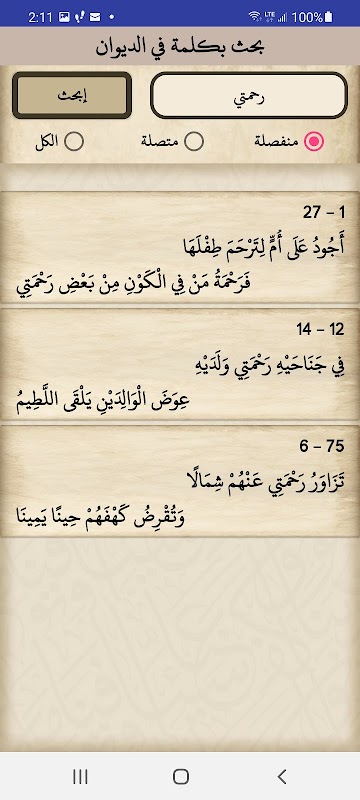 2:11 LTE 100%
بحث بكلمة في الديوان
رحمتي إبحث
منفصلة متصلة الكل
27 – 1
أَجُودُ عَلَى أُمٍّ لِتَرْحَمَ طِفْلَهَا
فَرَحْمَةُ مَنْ فِي الْكَوْنِ مِنْ بَعْضِ رَحْمَتِي
14 – 12
فِي جَنَاحَيْهِ رَحْمَتِي وَلَدَيْهِ
عِوَضَ الْوَالِدَيْنِ يَلْقَى اللَّطِيمُ
6 – 75
تَزَاوَرُ رَحْمَتِي عَنْهُمْ شِمَالًا
وَتُقْرِضُ كَهْفَهُمْ حِينًا يَمِينَا